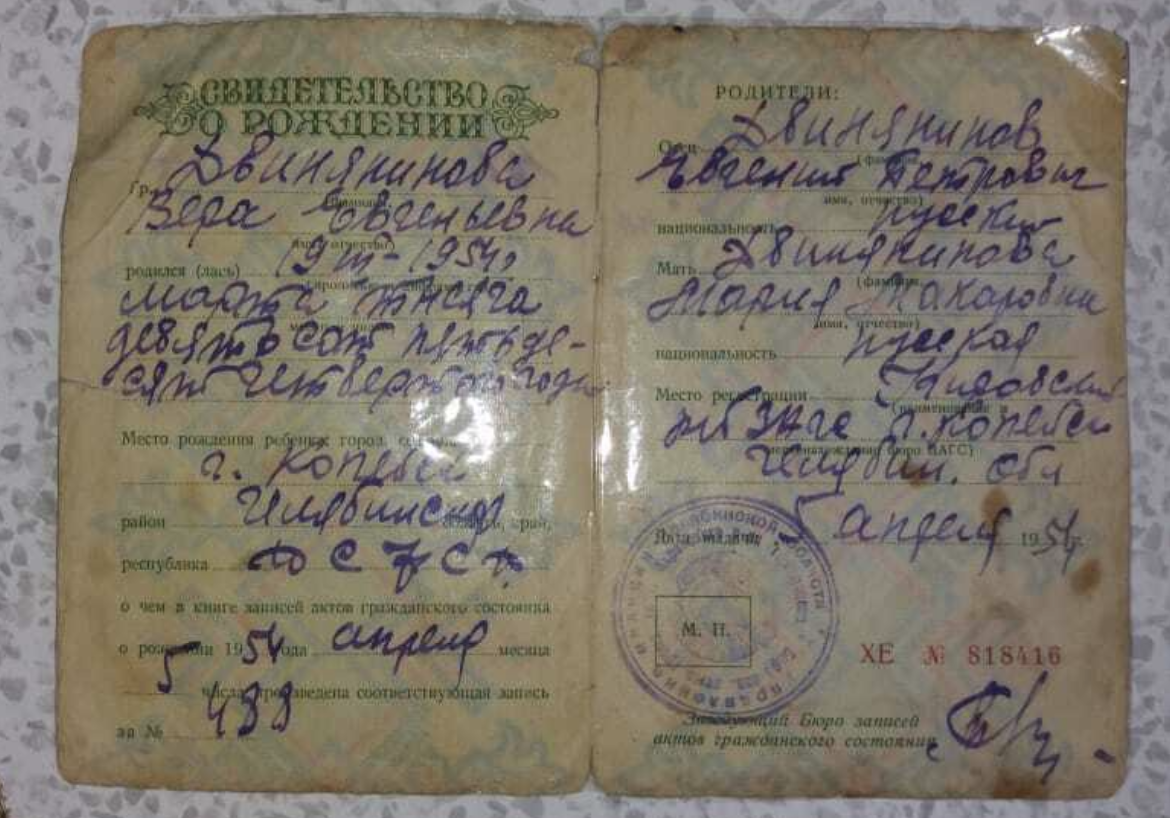 СВИДЕТЕЛЬСТВО
О РОЖДЕНИИ
Гр. Двинянинова
(фамилия)
Вера Евгеньевна
имя, отчество)
родился (лась) 19/III-1954,
марта тысяча
девятьсот пятьде-
сят четвертого года
Место рождения ребенка: город,
г. Копейск
район Челябинская область, край,
республика РСФСР
о чем в книге записей актов гражданского состояния
о рождении 1954 года апреля месяца
5 числа произведена соответствующая запись
за №
РОДИТЕЛИ:
Отец Двинянинов
(фамилия,
Евгений Петрович
имя, отчество)
национальность русский
Мать Двинянинова
(фамилия,
Мария Макаровна
имя, отчество)
национальность русская
Место регистрации
(наименование и
ЗАГС г. Копейск
местонахождение бюро ЗАГС)
Челябин. обл
Дата выдачи 5 апреля 1954 г.
М. П.
ХЕ № 818416
Заведующий Бюро записей
актов гражданского состояния